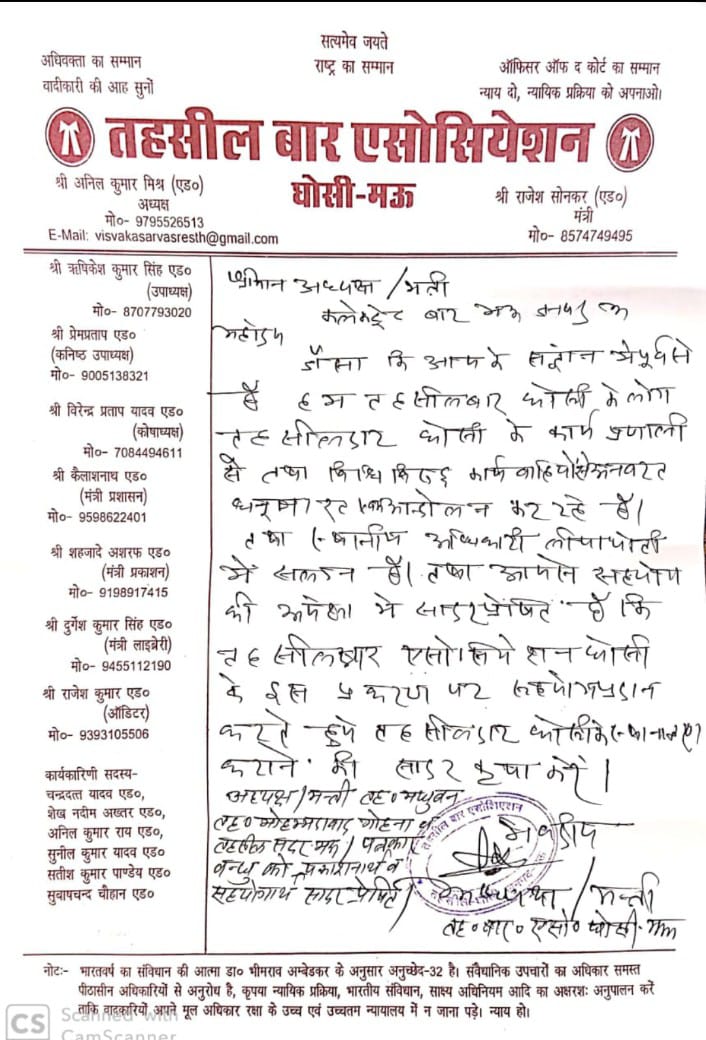 सत्यमेव जयते
अधिवक्ता का सम्मान
राष्ट्र का सम्मान
ऑफिसर ऑफ द कोर्ट का सम्मान
वादीकारी की आह सुनों
न्याय दो, न्यायिक प्रक्रिया को अपनाओ।
तहसील बार एसोसियेशन
घोसी-मऊ
श्री अनिल कुमार मिश्र (एड०)
अध्यक्ष
मो०- 9795526513
E-Mail: visvakasarvasresth@gmail.com
श्री राजेश सोनकर (एड०)
मंत्री
मो०- 8574749495
श्री ऋषिकेश कुमार सिंह एड०
(उपाध्यक्ष)
मो०- 8707793020
श्री प्रेमप्रताप एड०
(कनिष्ठ उपाध्यक्ष)
मो०- 9005138321
श्री विरेन्द्र प्रताप यादव एड०
(कोषाध्यक्ष)
मो०- 7084494611
श्री कैलाशनाथ एड०
(मंत्री प्रशासन)
मो०- 9598622401
श्री शहजादे अशरफ एड०
(मंत्री प्रकाशन)
मो०- 9198917415
श्री दुर्गेश कुमार सिंह एड०
(मंत्री लाइब्रेरी)
मो०- 9455112190
श्री राजेश कुमार एड०
(ऑडिटर)
मो०- 9393105506
कार्यकारिणी सदस्य-
चन्द्रदत्त यादव एड०,
शेख नदीम अख्तर एड०,
अनिल कुमार राय एड०,
सुनील कुमार यादव एड०
सतीश कुमार पाण्डेय एड०
सुबाषचन्द चौहान एड०
श्रीमान अध्यक्ष / मंत्री
कलेक्ट्रेट बार मऊ जनपद मऊ
महोदय
जैसा कि आपके संज्ञान मे पूर्व से
है हम तहसीलबार घोसी के लोग
तहसीलदार घोसी के कार्य प्रणाली
से तथा विधि विरूद्ध कार्यवाहियों से अनवरत
आन्दोलन कर रहे है।
तथा स्थानीय अधिकारी लीपापोती
में संलग्न है। तथा आपसे सहयोग
की अपेक्षा मे सादर प्रेषित है कि
तहसीलबार एसोसियेशन घोसी
के इस प्रकरण पर सहयोग प्रदान
करते हुये तहसीलदार घोसी के स्थानान्तरण
कराने की सादर कृपा करें।
अध्यक्ष/मन्त्री तह० मधुबन
तह० मोहम्मदाबाद गोहना व
तहसील सदर मऊ / पत्रकार
बन्धु को प्रकाशनार्थ व
सहयोगार्थ सादर प्रेषित।
तहसील बार एसोशिएशन
भवदीय
अध्यक्ष / मन्त्री
तह० बार० एसो० घोसी-मऊ
नोटः- भारतवर्ष का संविधान की आत्मा डा० भीमराव अम्बेडकर के अनुसार अनुच्छेद-32 है। संवैधानिक उपचारों का अधिकार समस्त
पीठासीन अधिकारियों से अनुरोध है, कृपया न्यायिक प्रक्रिया, भारतीय संविधान, साक्ष्य अधिनियम आदि का अक्षरशः अनुपालन करें
ताकि वादकारियों अपने मूल अधिकार रक्षा के उच्च एवं उच्चतम न्यायालय में न जाना पड़े। न्याय हो।
CS Scanned with
CamScanner